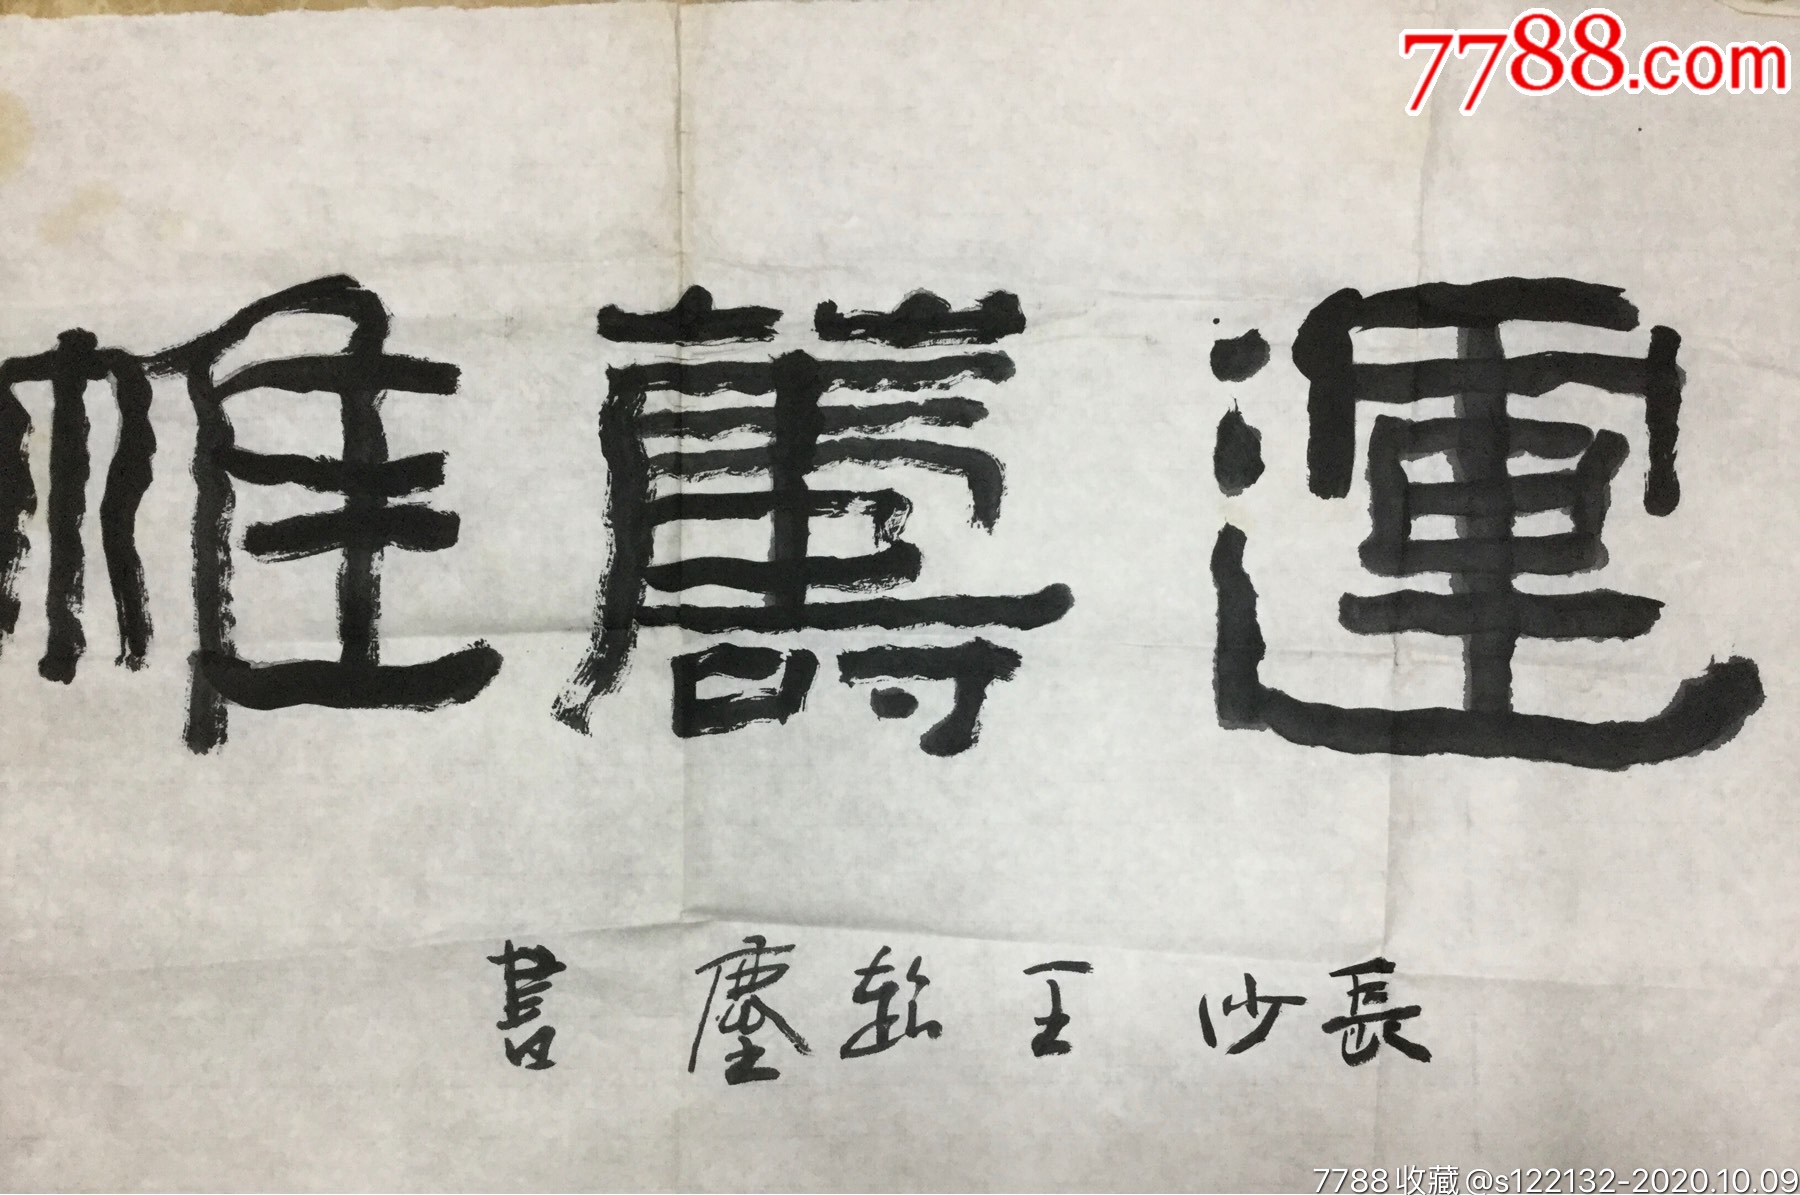 7788.com
運籌帷
長沙王超塵書
7788收藏@s122132-2020.10.09